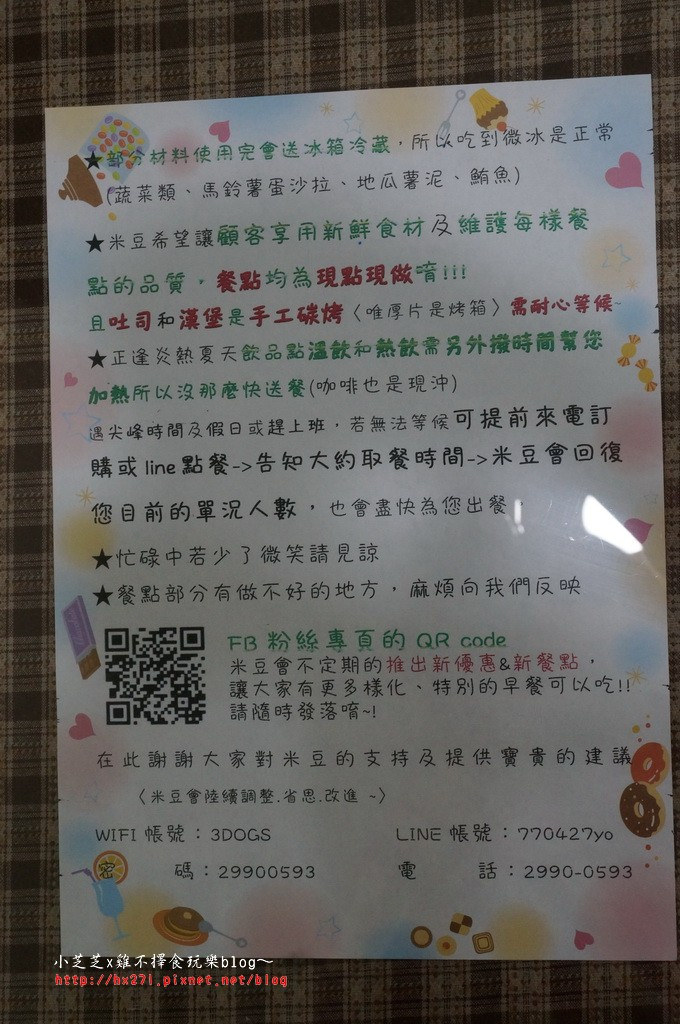 ★部分材料使用完會送冰箱冷藏，所以吃到微冰是正常
(蔬菜類、馬鈴薯蛋沙拉、地瓜薯泥、鮪魚)
★米豆希望讓顧客享用新鮮食材及維護每樣餐
點的品質，餐點均為現點現做唷!!!
且吐司和漢堡是手工碳烤〈唯厚片是烤箱〉需耐心等候~
★正逢炎熱夏天飲品點溫飲和熱飲需另外撥時間幫您
加熱所以沒那麼快送餐(咖啡也是現沖)
遇尖峰時間及假日或趕上班，若無法等候可提前來電訂
購或line點餐->告知大約取餐時間->米豆會回復
您目前的單況人數，也會盡快為您出餐，
★忙碌中若少了微笑請見諒
★餐點部分有做不好的地方，麻煩向我們反映
FB 粉絲專頁的 QR code
米豆會不定期的推出新優惠&新餐點，
讓大家有更多樣化、特別的早餐可以吃!!
請隨時發落唷~!
在此謝謝大家對米豆的支持及提供寶貴的建議
〈米豆會陸續調整.省思.改進 ~〉
WIFI 帳號：3DOGS LINE 帳號：770427yo
密 碼：29900593 電 話：2990-0593
小芝芝x雞不擇食玩樂blog～
http://hx271.pixnet.net/blog